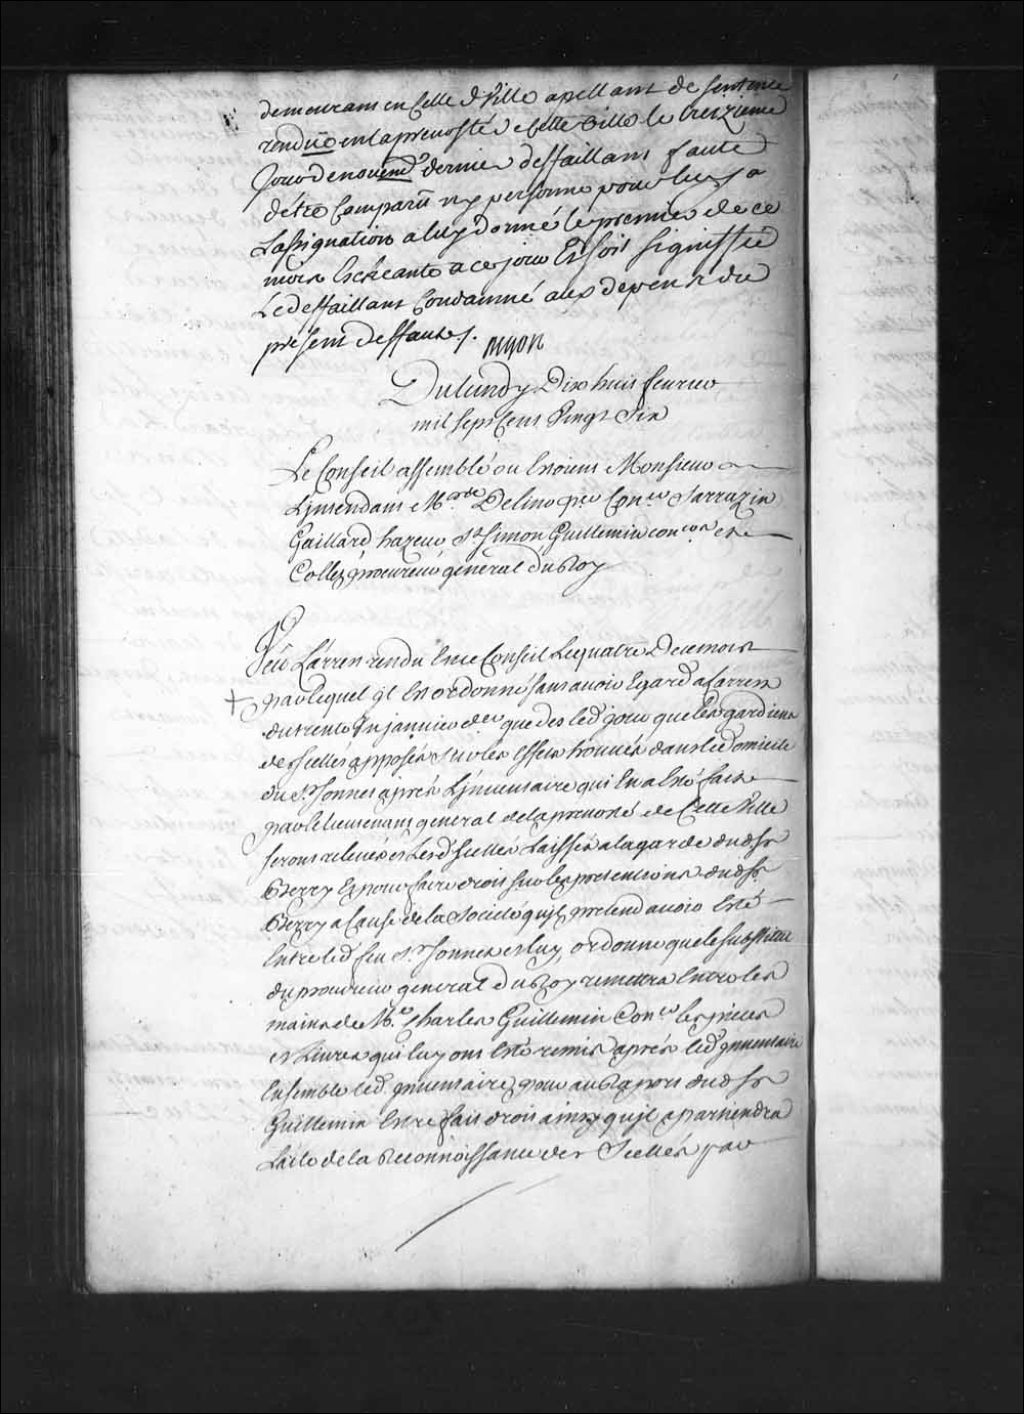 demeurant en cette d. Ville apellant de sentence
rendüe en la prevosté de cette Ville le treizieme
Jour de novemb. dernier deffaillant faute
détre Comparü ny personne pour luy a
Lassignation a luy donné le premier de ce
mois Escheante a ce jour Et soit signiffié
Le deffaillant Condamné aux depens du
présent deffaut /.
Du lundy Dix huit fevrier
mil sept Cent Vingt Six
Le Conseil assemblé ou Etoient Monsieur
L'jntendant Mrs. Delino per. Coner. Sarrazin
Gaillard hazeur St. Simon Guillemin coners. et
Collet procureur général du Roy
Veu L'arrest rendu En ce Conseil Le quatre De ce mois
+ par lequel jl Est ordonné sans avoir Egard a l'arrest
du trente Un janvier der. que des led. jour que les gardiens
des scellés apposés sur les effets trouvés dans le domicile
du Sr. Jonnes aprés L'jnventaire qui En a Eté fait
par le lieutenant general de la prevosté de Cette Ville
seront relevés et Lesd. scellés Laissés a la garde dud. Sr.
Berry Et pour faire droit sur les pretensions dud. Sr.
Berry a Cause de la Societé qu'jl pretend avoir Eté
Entre led. feu Sr. Jonnes et luy, ordonne que le substitut
du procureur general du Roy remettra Entre les
mains de Me. Charles Guillemin Coner. les piéces
et Livres qui luy ont Eté remis aprés led. jnventaire
Ensemble led. jnventaire, pour au Raport dud. Sr.
Guillemin Estre fait droit ainsy qu'jl apartiendra
L'acte de la Reconnoissance des Scellés par